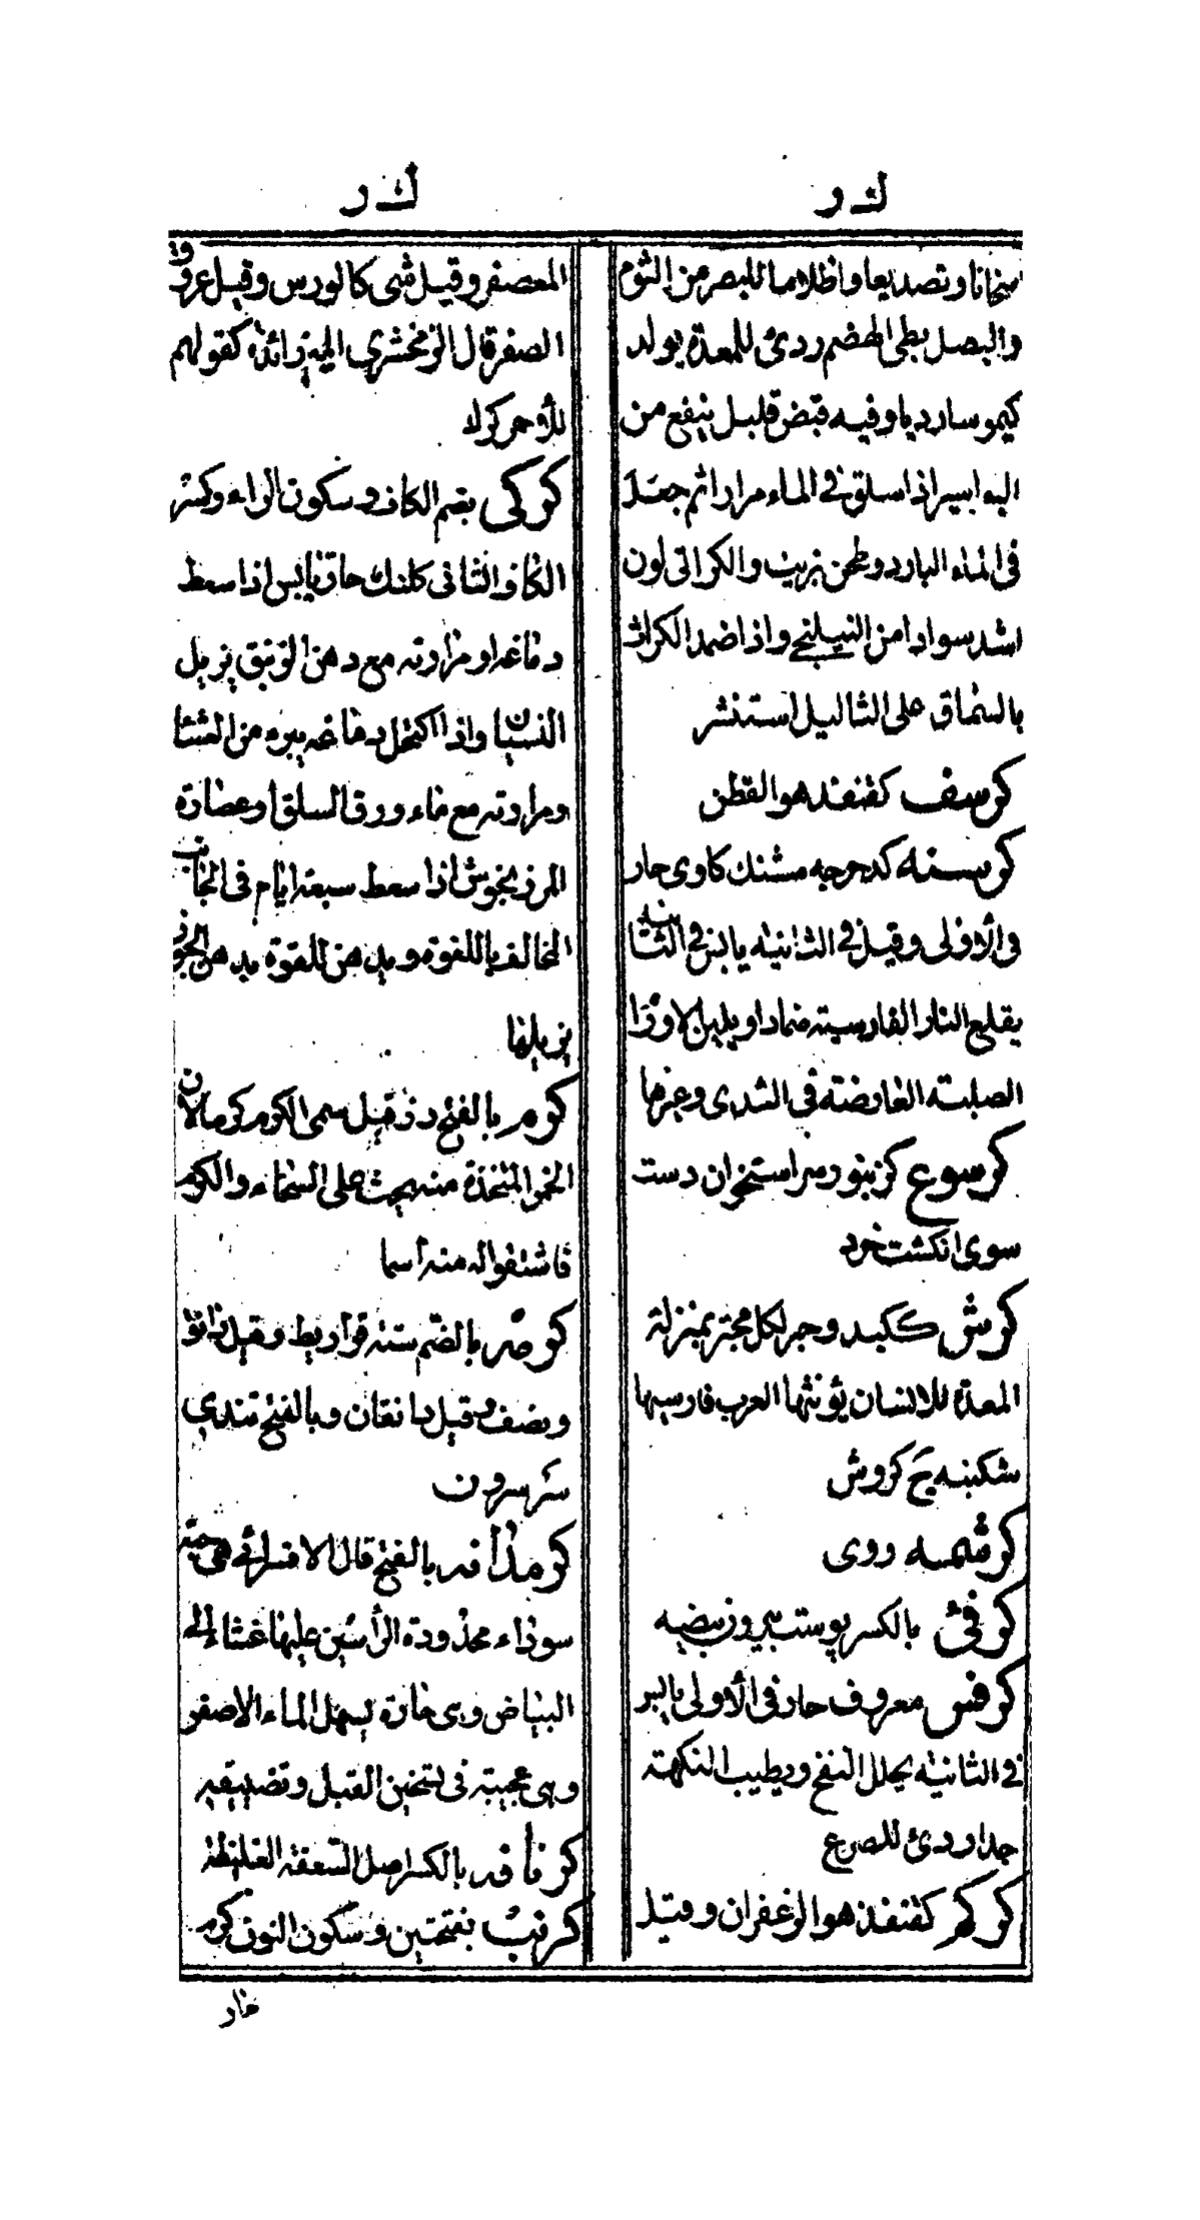 ك ر
ك ر
سخانا وتصديعا واظلاما للبصر من الثوم
والبصل بطی الهضم ردئ للمعدة يولد
كيموسا رديا وفيه قبض قليل ينفع من
البواسير اذا سلق فی الماء مرارا ثم جعل
فی الماء البارد وطحن بزيت والكراثی لون
اشد سوادا من النيلنج واذا ضمد الكراث
بالسماق على الثاليل استنثر
كرسف كقنفذ هو القطن
كرسنه كدحرجه مشنك كاوی حار
فی الأولى وقيل فی الثانية يابس فی الثانية
يقلع النار الفارسية ضمادا ويلين الاورام
الصلبة العارضة فی الثدی وغيرها
كرسوع كزنبور سر استخوان دست
سوی انكشت خرد
كرش ككبد وجر لكل مجتر بمنزلة
المعدة للانسان يؤنثها العرب فارسيها
شكنبه ج كروش
كرشمه روی
كرفئ بالكسر پوست بيرون بيضه
كرفس معروف حار فی الأولى يابس
فی الثانية يحلل النفخ ويطيب النكهة
جدا ردئ للصرع
كركم كقنفذ هو الزعفران وقيل
المعصفر وقيل شی كالورس وقيل عروق
الصفر قال الزمخشری الميم زائدة كقولهم
للأحمر كرك
كركی بضم الكاف وسكون الراء وكسر
الكاف الثانی كلنك حار يابس اذا سعط
دماغه او مرارته مع دهن الزنبق يزيل
النسيان واذا اكتحل دماغه يبرء من العشا
ومرارته مع ماء ورق السلق او عصارة
المرزنجوش اذا سعط سبعة ايام فی الجانب
المخالف باللقوة ويدهن للقوة بدهن الجوز
يزيلها
كرم بالفتح رز قيل سمی الكرم كرما لان
الخمر المتخذة منه يحث على السخاء والكرم
فاشتقوا له منه اسما
كرمه بالضم ستة قراريط وقيل دانق
ونصف وقيل دانقان وبالفتح تندی
سر سرون
كرمدانه بالفتح قال الاقسرائی هی حبة
سوداء محدودة الرأسين عليها غشاء الى
البياض وهی حارة يسهل الماء الاصفر
وهی عجيبة فی تسخين القبل وتضييقه
كرنافه بالكسر اصل السعفة الغليظة
كرنب بفتحتين وسكون النون كرم
حار